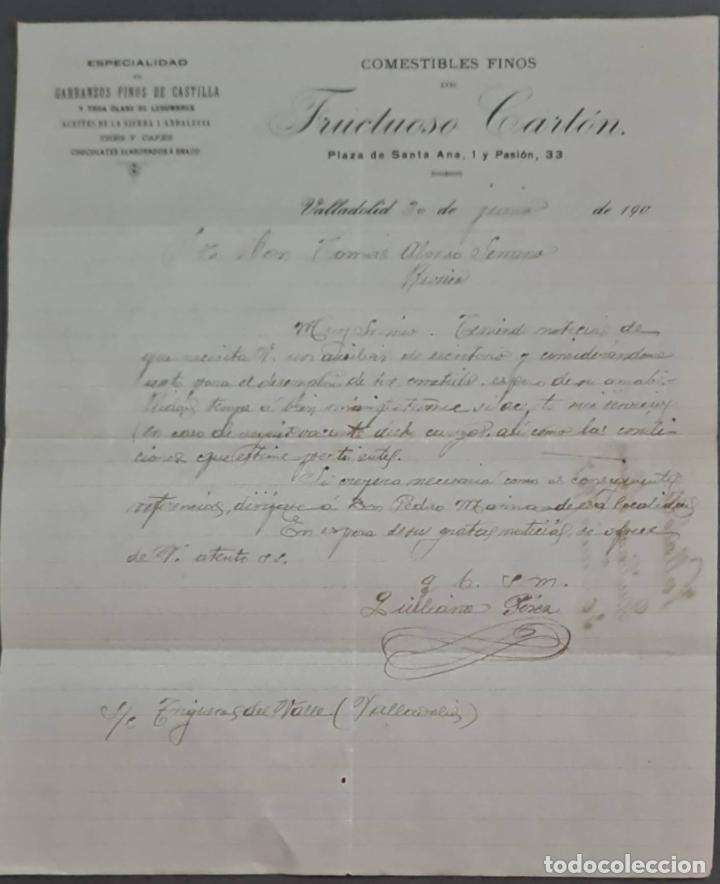 ESPECIALIDAD
EN
GARBANZOS FINOS DE CASTILLA
Y TODA CLASE DE LEGUMBRES
ACEITES DE LA SIERRA Y ANDALUCIA
THES Y CAFES
CHOCOLATES ELABORADOS Á BRAZO
COMESTIBLES FINOS
DE
Fructuoso Cartón.
Plaza de Santa Ana, 1 y Pasión, 33
Valladolid 30 de junio de 190
Sr Don Tomás Alonso Serrano
Rioseco
Muy Sr mio. Teniendo noticias de
que necesita V. un auxiliar de escritorio y considerándome
apto para el desempeño de tal cometido, espero de su amabi-
lidad, tenga á bien
en caso de dicho cargo, así como las condi-
ciones que estime pertinentes.
Si creyera necesaria como es consiguiente
referencias, dirijase á Don Pedro Marina de esa localidad
En espera de sus gratas noticias, se ofrece
de V. atento ss.
q b. s. m.
Julliano Pérez
S/c Trigueros del Valle (Valladolid)
todocoleccion.net